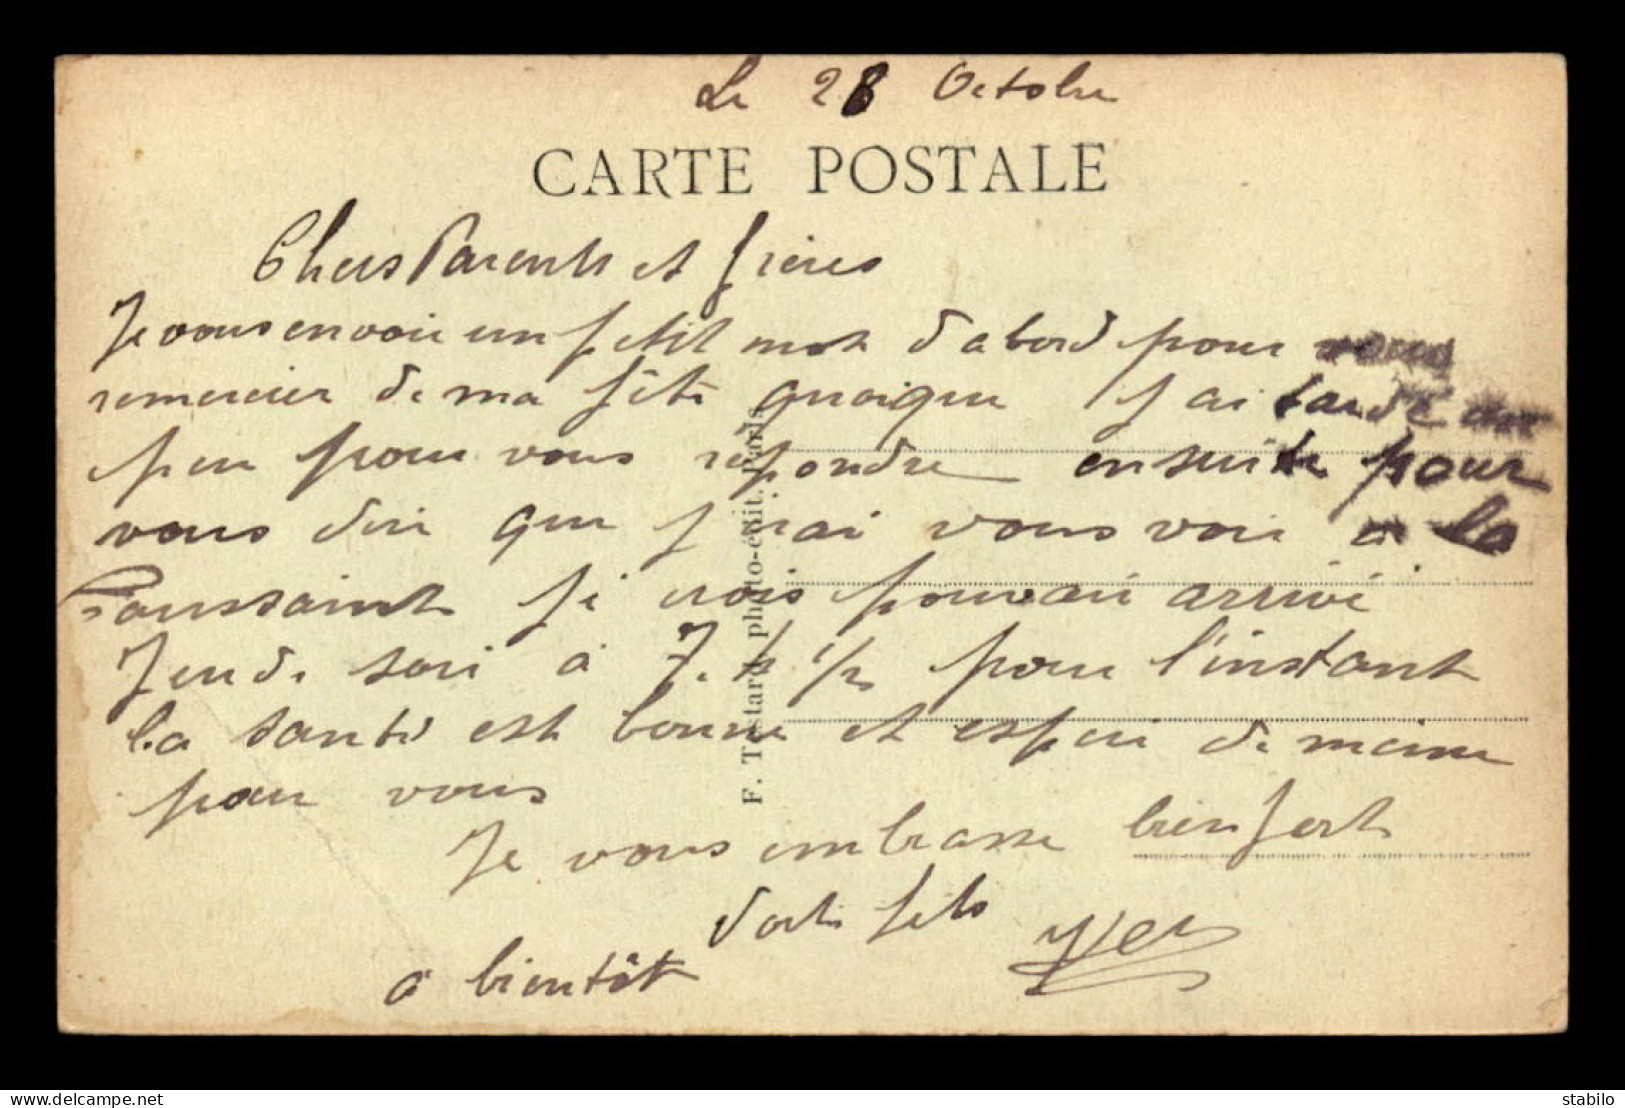 Le 28 Octobre
CARTE POSTALE
Chers Parents et frères
Je vous envoie un petit mot d'abord pour vous
remercier de ma fête quoique j'ai tardé un
peu pour vous répondre ensuite pour
vous dire que j'irai vous voir a la
Toussaint je crois pouvoir arrivé
Jeudi soir à 7.h 1/2 pour l'instant
la santé est bonne et espère de même
pour vous
Je vous embrasse bien fort
Votre fils
a bientôt
F. Testard, photo-édit. Paris
Delcampe.net
stabilo